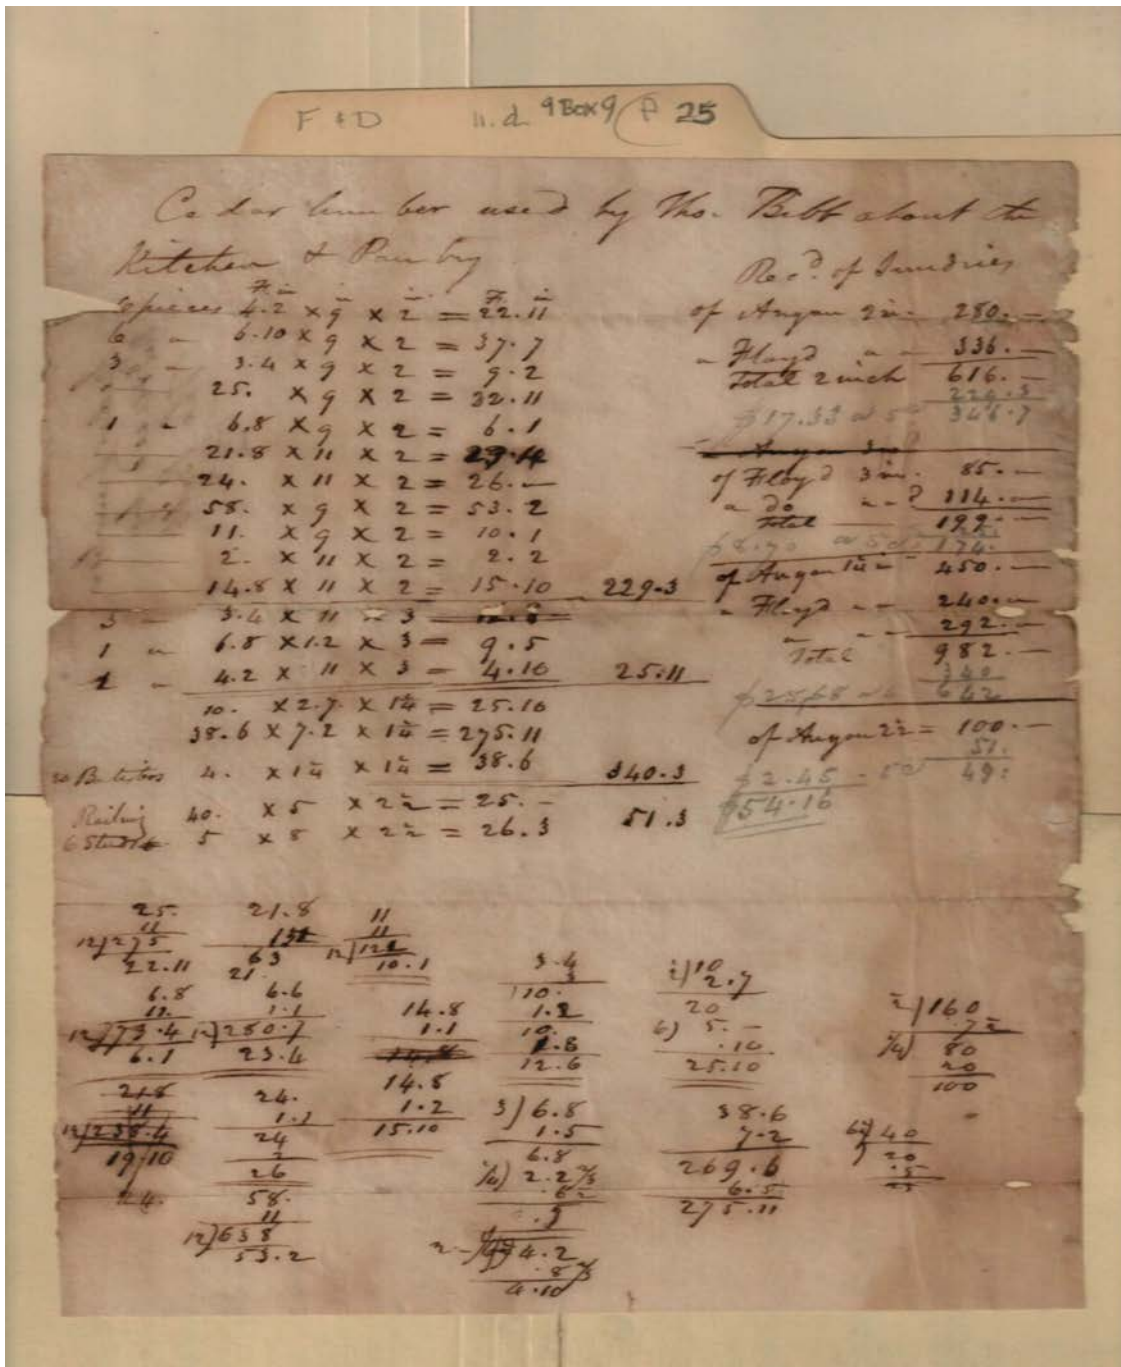 F & D n.d. 9 Box 9 P 25
Cedar lumber used by Tho. Bibb about the
Kitchen & Pantry
F. in in in F. in
pieces 4.2 x 9 x 2 = 22.11
6 " 6.10 x 9 x 2 = 37.7
3 " 3.4 x 9 x 2 = 9.2
25. x 9 x 2 = 32.11
1 " 6.8 x 9 x 2 = 6.1
21.8 x 11 x 2 =
24. x 11 x 2 = 26.—
58. x 9 x 2 = 53.2
11. x 9 x 2 = 10.1
2. x 11 x 2 = 2.2
14.8 x 11 x 2 = 15.10 229.3
3 — 3.4 x 11 — 3 =
1 " 6.8 x 1.2 x 3 = 9.5
1 " 4.2 x 11 x 3 = 4.10 25.11
10. x 2.7 x 1¼ = 25.10
38.6 x 7.2 x 1¼ = 275.11
4. x 1¼ x 1¼ = 38.6 340.3
Railing 40. x 5 x 2½ = 25.—
6 Studs 5 x 8 x 2½ = 26.3 51.3
Recd. of Sundries
of Angon 2 in — 280.—
" Floyd " " 336.—
Total 2 inch 616.—
229.3
$17.33 a 5c 346.7
of Floyd 3 in. 85.—
" Do " " 114.—
Total 199.—
25.
$8.70 a 5c 174.
of Angon 1¼ — 450.—
" Floyd " — 240.—
" " — 292.—
Total 982.—
340
$25,68 a 4 642
of Angon 2½ = 100.—
51.
$2.45 - 5c 49:
$54.16
25. 21.8 11
11 11
12)275 63 12)121
22.11 21 10.1
3.4
3
10.
10
2.7
20
6.8 6.6
11. 1.1 14.8 1.2
12)73.4 12)280.7 1.1 10.
6.1 23.4 1.8
12.6
6) 5.—
.10
25.10
2)160
7½
¼) 80
20
100
21.8 24. 14.8
11 1.1 1.2
12)238.4 24 15.10
19/10 2
24. 26
3)6.8
1.5
6.8
¼) 2.2⅔
38.6
7.2
269.6
6.5
275.11
40
20
.5
25
58.
11
12)638
53.2
4.2
.8⅔
4.10